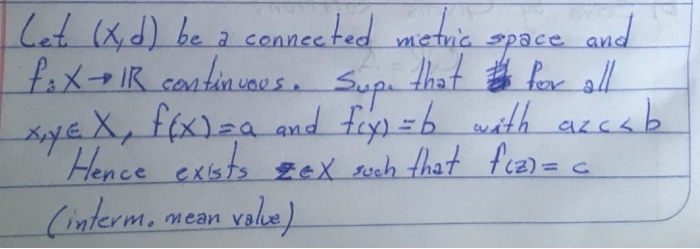 Let (X,d) be a connected metric space and
f: X → IR continuous. Sup. that for all
x,y ∈ X, f(x)=a and f(y)=b with a<c<b
Hence exists z∈X such that f(z)=c
(interm. mean value)